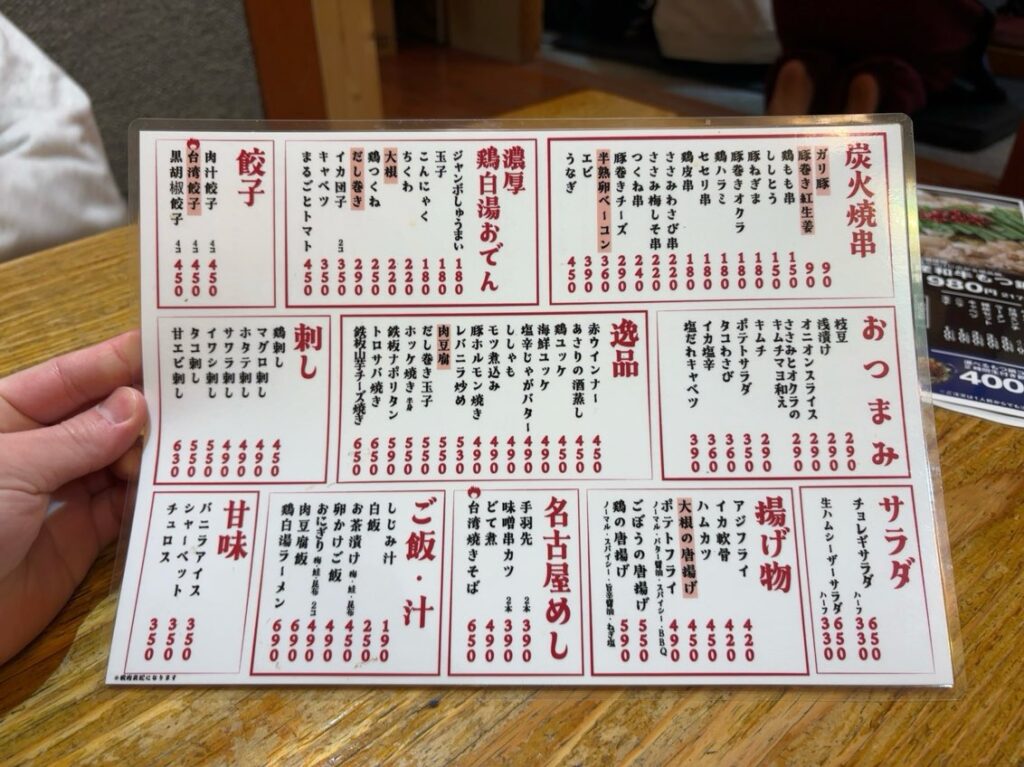 炭火焼串
ガリ豚 90
豚巻き紅生姜 90
鶏もも串 150
ししとう 150
豚ねぎま 180
豚巻きオクラ 180
鶏ハラミ 180
セセリ串 180
鶏皮串 180
ささみわさび串 220
ささみ梅しそ串 220
つくね串 240
豚巻きチーズ 290
半熟卵ベーコン 360
エビ 390
うなぎ 450
濃厚
鶏白湯おでん
ジャンボしゅうまい 180
玉子 180
こんにゃく 180
ちくわ 220
大根 220
鶏つくね 250
だし巻き 290
イカ団子 2コ 350
キャベツ 350
まるごとトマト 450
餃子
肉汁餃子 4コ 450
台湾餃子 4コ 450
黒胡椒餃子 4コ 450
おつまみ
枝豆 290
浅漬け 290
オニオンスライス 290
ささみとオクラの
キムチマヨ和え 290
キムチ 290
ポテトサラダ 350
タコわさび 360
イカ塩辛 360
塩だれキャベツ 390
逸品
赤ウインナー 450
あさりの酒蒸し 450
鶏ユッケ 450
海鮮ユッケ 490
塩辛じゃがバター 490
ししゃも 490
モツ煮込み 490
豚ホルモン焼き 490
レバニラ炒め 530
肉豆腐 550
だし巻き玉子 550
ホッケ焼き 半身
鉄板ナポリタン 590
トロサバ焼き 650
鉄板山芋チーズ焼き 650
刺し
鶏刺し 450
マグロ刺し 490
ホタテ刺し 490
サワラ刺し 490
イワシ刺し 550
タコ刺し 550
甘エビ刺し 630
サラダ
チョレギサラダ 650
ハーフ 330
生ハムシーザーサラダ 650
ハーフ 330
揚げ物
アジフライ 420
イカ軟骨 420
ハムカツ 450
大根の唐揚げ 450
ポテトフライ 490
ノーマル・バター醤油・スパイシー・BBQ
ごぼうの唐揚げ 550
鶏の唐揚げ 590
ノーマル・スパイシー・旨辛醤油・ねぎ塩
名古屋めし
手羽先 2本 390
味噌串カツ 2本 390
どて煮 490
台湾焼きそば 650
ご飯・汁
しじみ汁 190
白飯 250
お茶漬け 梅・鮭・昆布 450
卵かけご飯 490
おにぎり 梅・鮭・昆布 2コ 490
肉豆腐飯 690
鶏白湯ラーメン 690
甘味
バニラアイス 350
シャーベット 350
チュロス 350
※税抜表記になります
980円
400